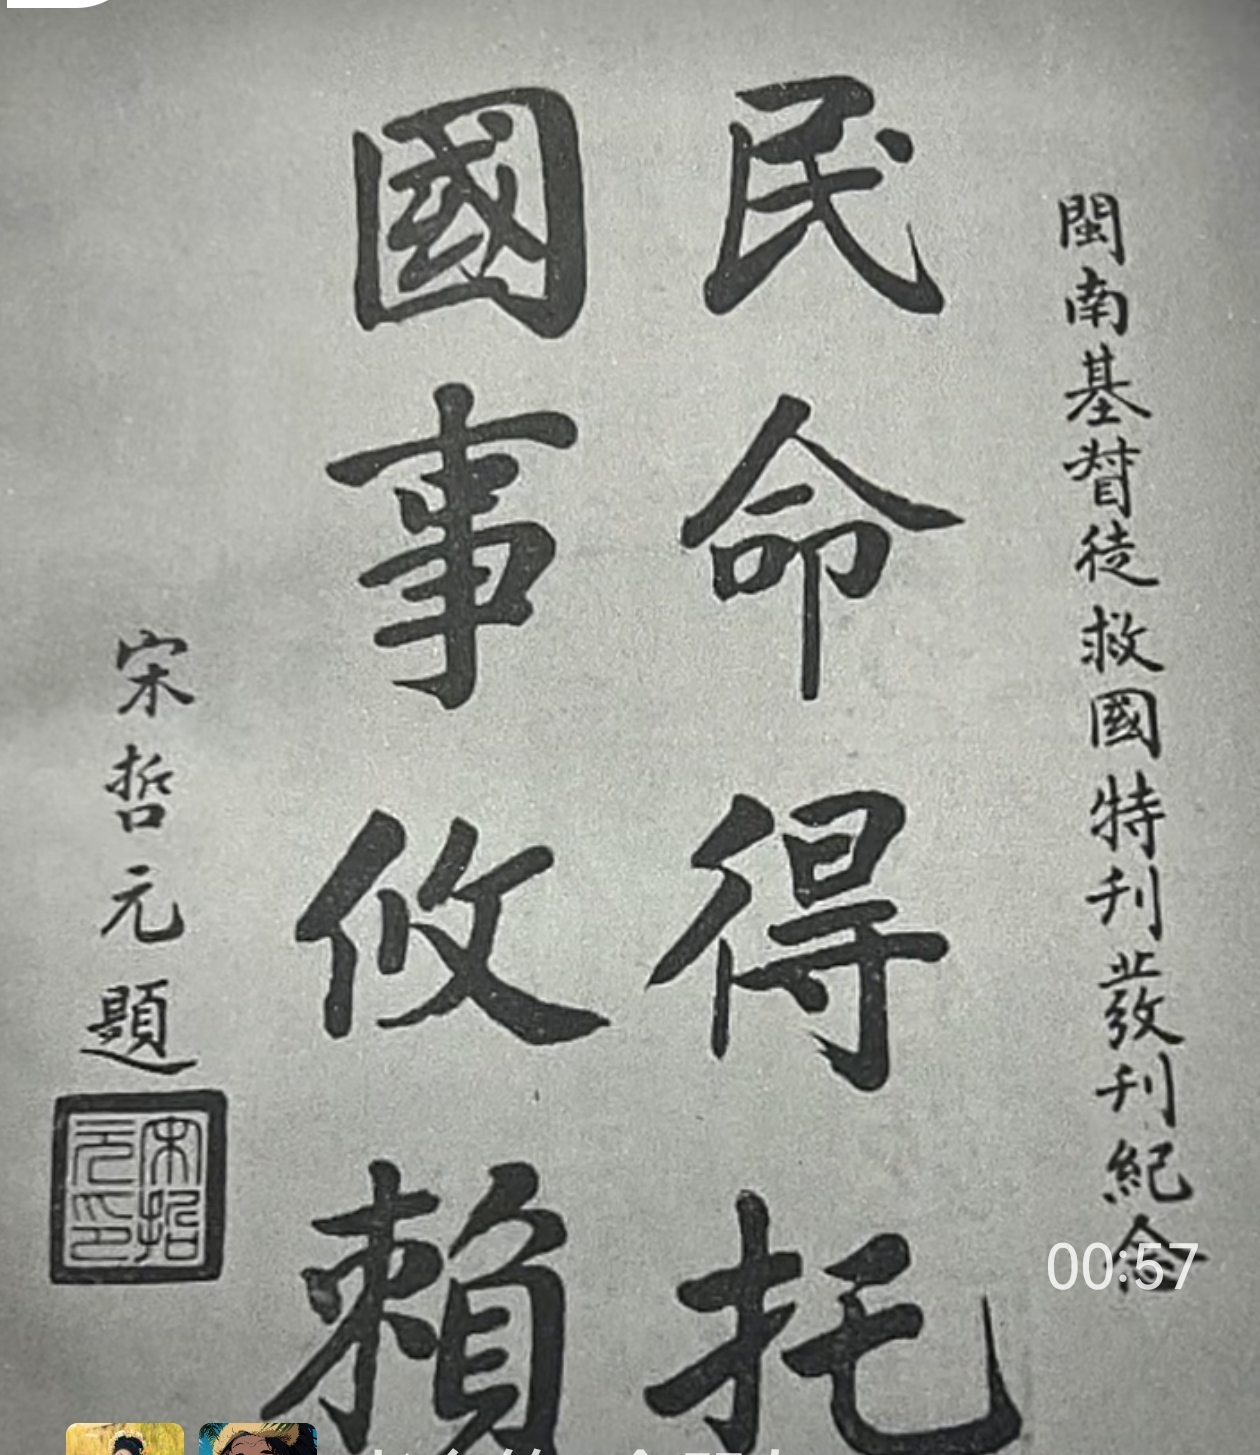 閩南基督徒救國特刊發刊紀念
民命得托
國事攸賴
宋哲元題
宋哲元印
00:57